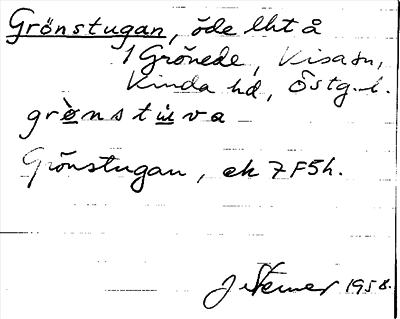 Grönstugan, öde lht å
1 Grönede, Kisa sn,
Kinda hd, Östg. l.
grö̀nstu̇va
Grönstugan, ek 7F5h.
1958.